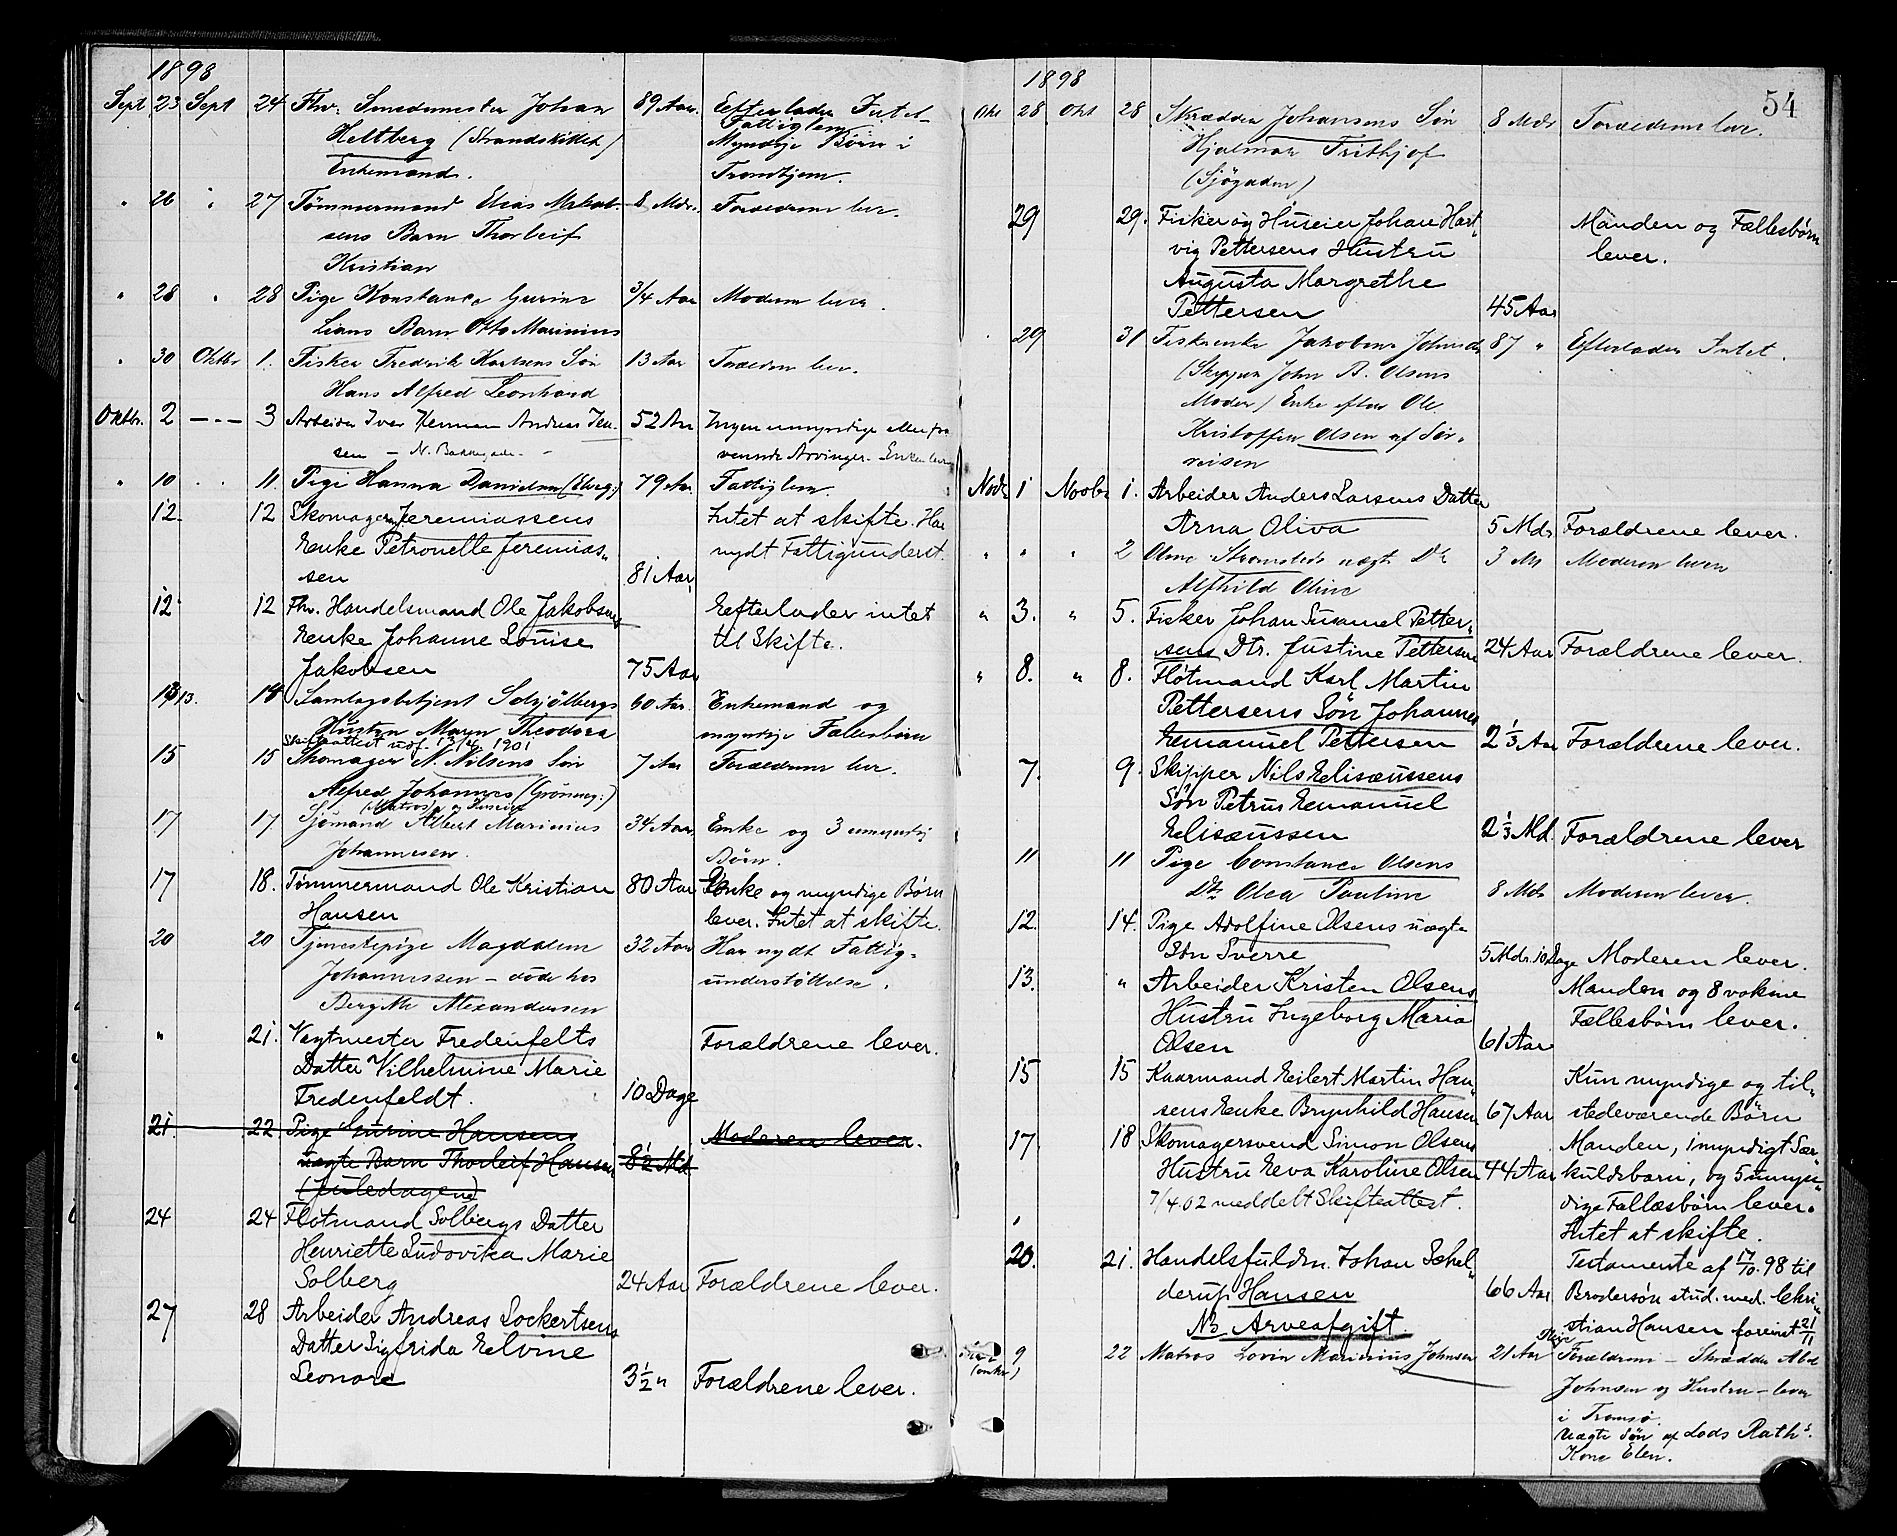 1898
Sept 23 Sept 24 Fhv. Smedemester Johan 89 Aar. Eefterlader Intet
Heltberg (Strandskillet) Fattiglem
Myndige Børn i
Enkemand. Tromhjem.
" 26 " 27 Tømmermand Elias 8 Mdr. Forældrene lev.
sens Barn Thorleif
Kristian
" 28 " 28 Pige Konstance Gurine 3/4 Aar Moderen lever.
Lians Barn Otto Marinius
" 30 Oktbr 1. Fisker Fredrik Karlsens Søn 13 Aar Forældren lev.
Hans Alfred Leonhard
Oktbr. 2 — " — 3 Arbeider Iver Herman Andreas Jen- 52 Aar Ingen umyndige eller fra
sen – N. Bakkegade – værende Arvinger. Enken lever
" 10 " " 11. Pige Hanna Danielsen 79 Aar Fattiglem.
12. 12 Skomager Jeremiassens Intet at skifte. Har
Enke Petronelle Jeremias- nydt Fattigunderst.
sen 81 Aar
12 12 Fhv. Handelsmand Ole Jakobsens Eefterlader intet
Enke Johanne Louise til Skifte.
Jakobsen 75 Aar
13. 14 Samlagsbetjent Solvjølbergs 60 Aar. Enkemand og
Hustru Maren Theodora myndige Fællesbørn
Skifteattest udf. 13/4 1901
15 15 Skomager N. Nilsens Søn 7 Aar Forældrene lev.
Alfred Johannes (Grønneg:)
(Matros) og Huseier
17 17 Sjømand Albert Marinius 34 Aar Enke og 3 umyndig
Johannesen. Børn.
17 18. Tømmermand Ole Kristian 80 Aar Enke og myndige Børn
Hansen lever. Intet at skifte.
20 20 Tjenestepige Magdalena 32 Aar Har nydt Fattig-
Johannessen – døde hos understøttelse.
Bergitte Alexandersen
" 21. Vagtmester Fredenfelts Forældrene lever.
Datter Vilhelmine Marie
Fredenfeldt. 10 Dage
21. 22 Pige Gurine Hansens Moderen lever.
uægte Barn Thorleif Hansen 8½ Md.
(Juledagene)
24 24 Flotmand Solbergs Datter
Henriette Ludovika Marie
Solberg 24 Aar Forældrene lever.
27 28 Arbeider Andreas Lockertsens
Datter Sigfrida Elvine
Leonore 3½ " Forældrene lever.
54
1898
Okt 28 Okt 28 Skrædder Johansens Søn 8 Mdr Forældrene lev.
Hjalmar Frithjof
(Sjøgaden)
29 29. Fisker og Huseier Johan Hart- Manden og Fællesbørn
vig Pettersens Hustru lever.
Augusta Margrethe
Pettersen 45 Aar
29 31 Fiskerenke Jakobine Johnsdr 87 " Efterlader Intet.
(Skipper John A. Olsens
Moder) Enke efter Ole
Kristoffer Olsen af Sør-
reisen
Novbr 1 Novbr 1. Arbeider Anders Larsens Datter
Arna Oliva 5 Mdr Forældrene lever.
" " " 2 Oline Strømsteds uægt Dtr 3 Mdr Moderen lever
Alfhild Oline
" 3. " 5. Fisker Johan Samuel Petter-
sens Dtr. Justine Pettersen 24 Aar Forældrene lever.
" 8. " 8. Flotmand Karl Martin
Pettersens Søn Johannes
Emanuel Pettersen 2⅓ Aar Forældrene lever.
7. 9. Skipper Nils Elisæussens
Søn Petrus Emanuel
Elisæussen 2⅓ Md. Forældrene lever
11 11 Pige Constance Olsens
Dtr Olea Pauline 8 Mdr Moderen lever.
12. 14. Pige Adolfine Olsens uægte
Søn Sverre 5 Mdr. 10 Dage Moderen lever.
13. " Arbeider Kristen Olsens Manden og 8 voksne
Hustru Ingeborg Maria Fællesbørn lever.
Olsen 61 Aar
15 15 Kaarmand Eilert Martin Han- Kun myndige og til-
sens Enke Brynhild Hansen 67 Aar stedeværende Børn
17 18 Skomagersvend Simon Olsens Manden, 1 myndigt Sær-
Hustru Eva Karoline Olsen 44 Aar kuldsbarn, og 5 umyn-
7/4 02 meddelt Skifteattest. dige Fællesbørn lever.
Intet at skifte.
20. 21. Handelsfuldm. Johan Schel- Testamente af 17/10. 98 til
derup Hansen 66 Aar Brodersøn stud. med. Chri-
NB Arveafgift. stian Hansen foreviist 21/11
9 22 Matros Lovin Marinius Johnsen 21 Aar Forældrene – Skrædder Abel
(omkr) Johnsen og Hustru – lever
i Tromsø.
Uægte Søn af Lods Rath's
Kone Elen.